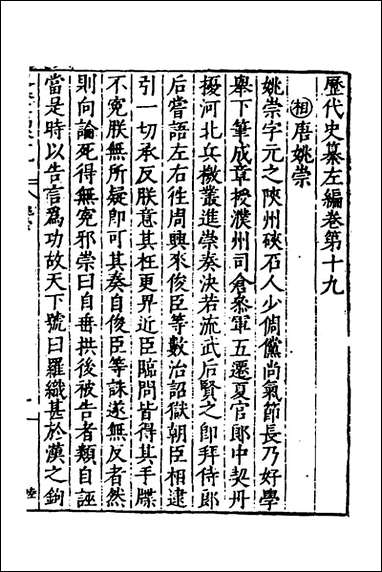 歷代史纂左編卷第十九
相唐姚崇
姚崇字元之陝州硤石人少倜儻尚氣節長乃好學
舉下筆成章授濮州司倉叅軍五遷夏官郎中契丹
擾河北兵檄叢進崇奏決若流武后賢之即拜侍郎
后嘗語左右徃周興來俊臣等數治詔獄朝臣相逮
引一切承反朕意其枉更畀近臣臨問皆得其手牒
不寃朕無所疑即可其奏自俊臣等誅遂無反者然
則向論死得無寃邪崇曰自垂拱後被告者類自誣
當是時以告言爲功故天下號曰羅織甚於漢之鉤